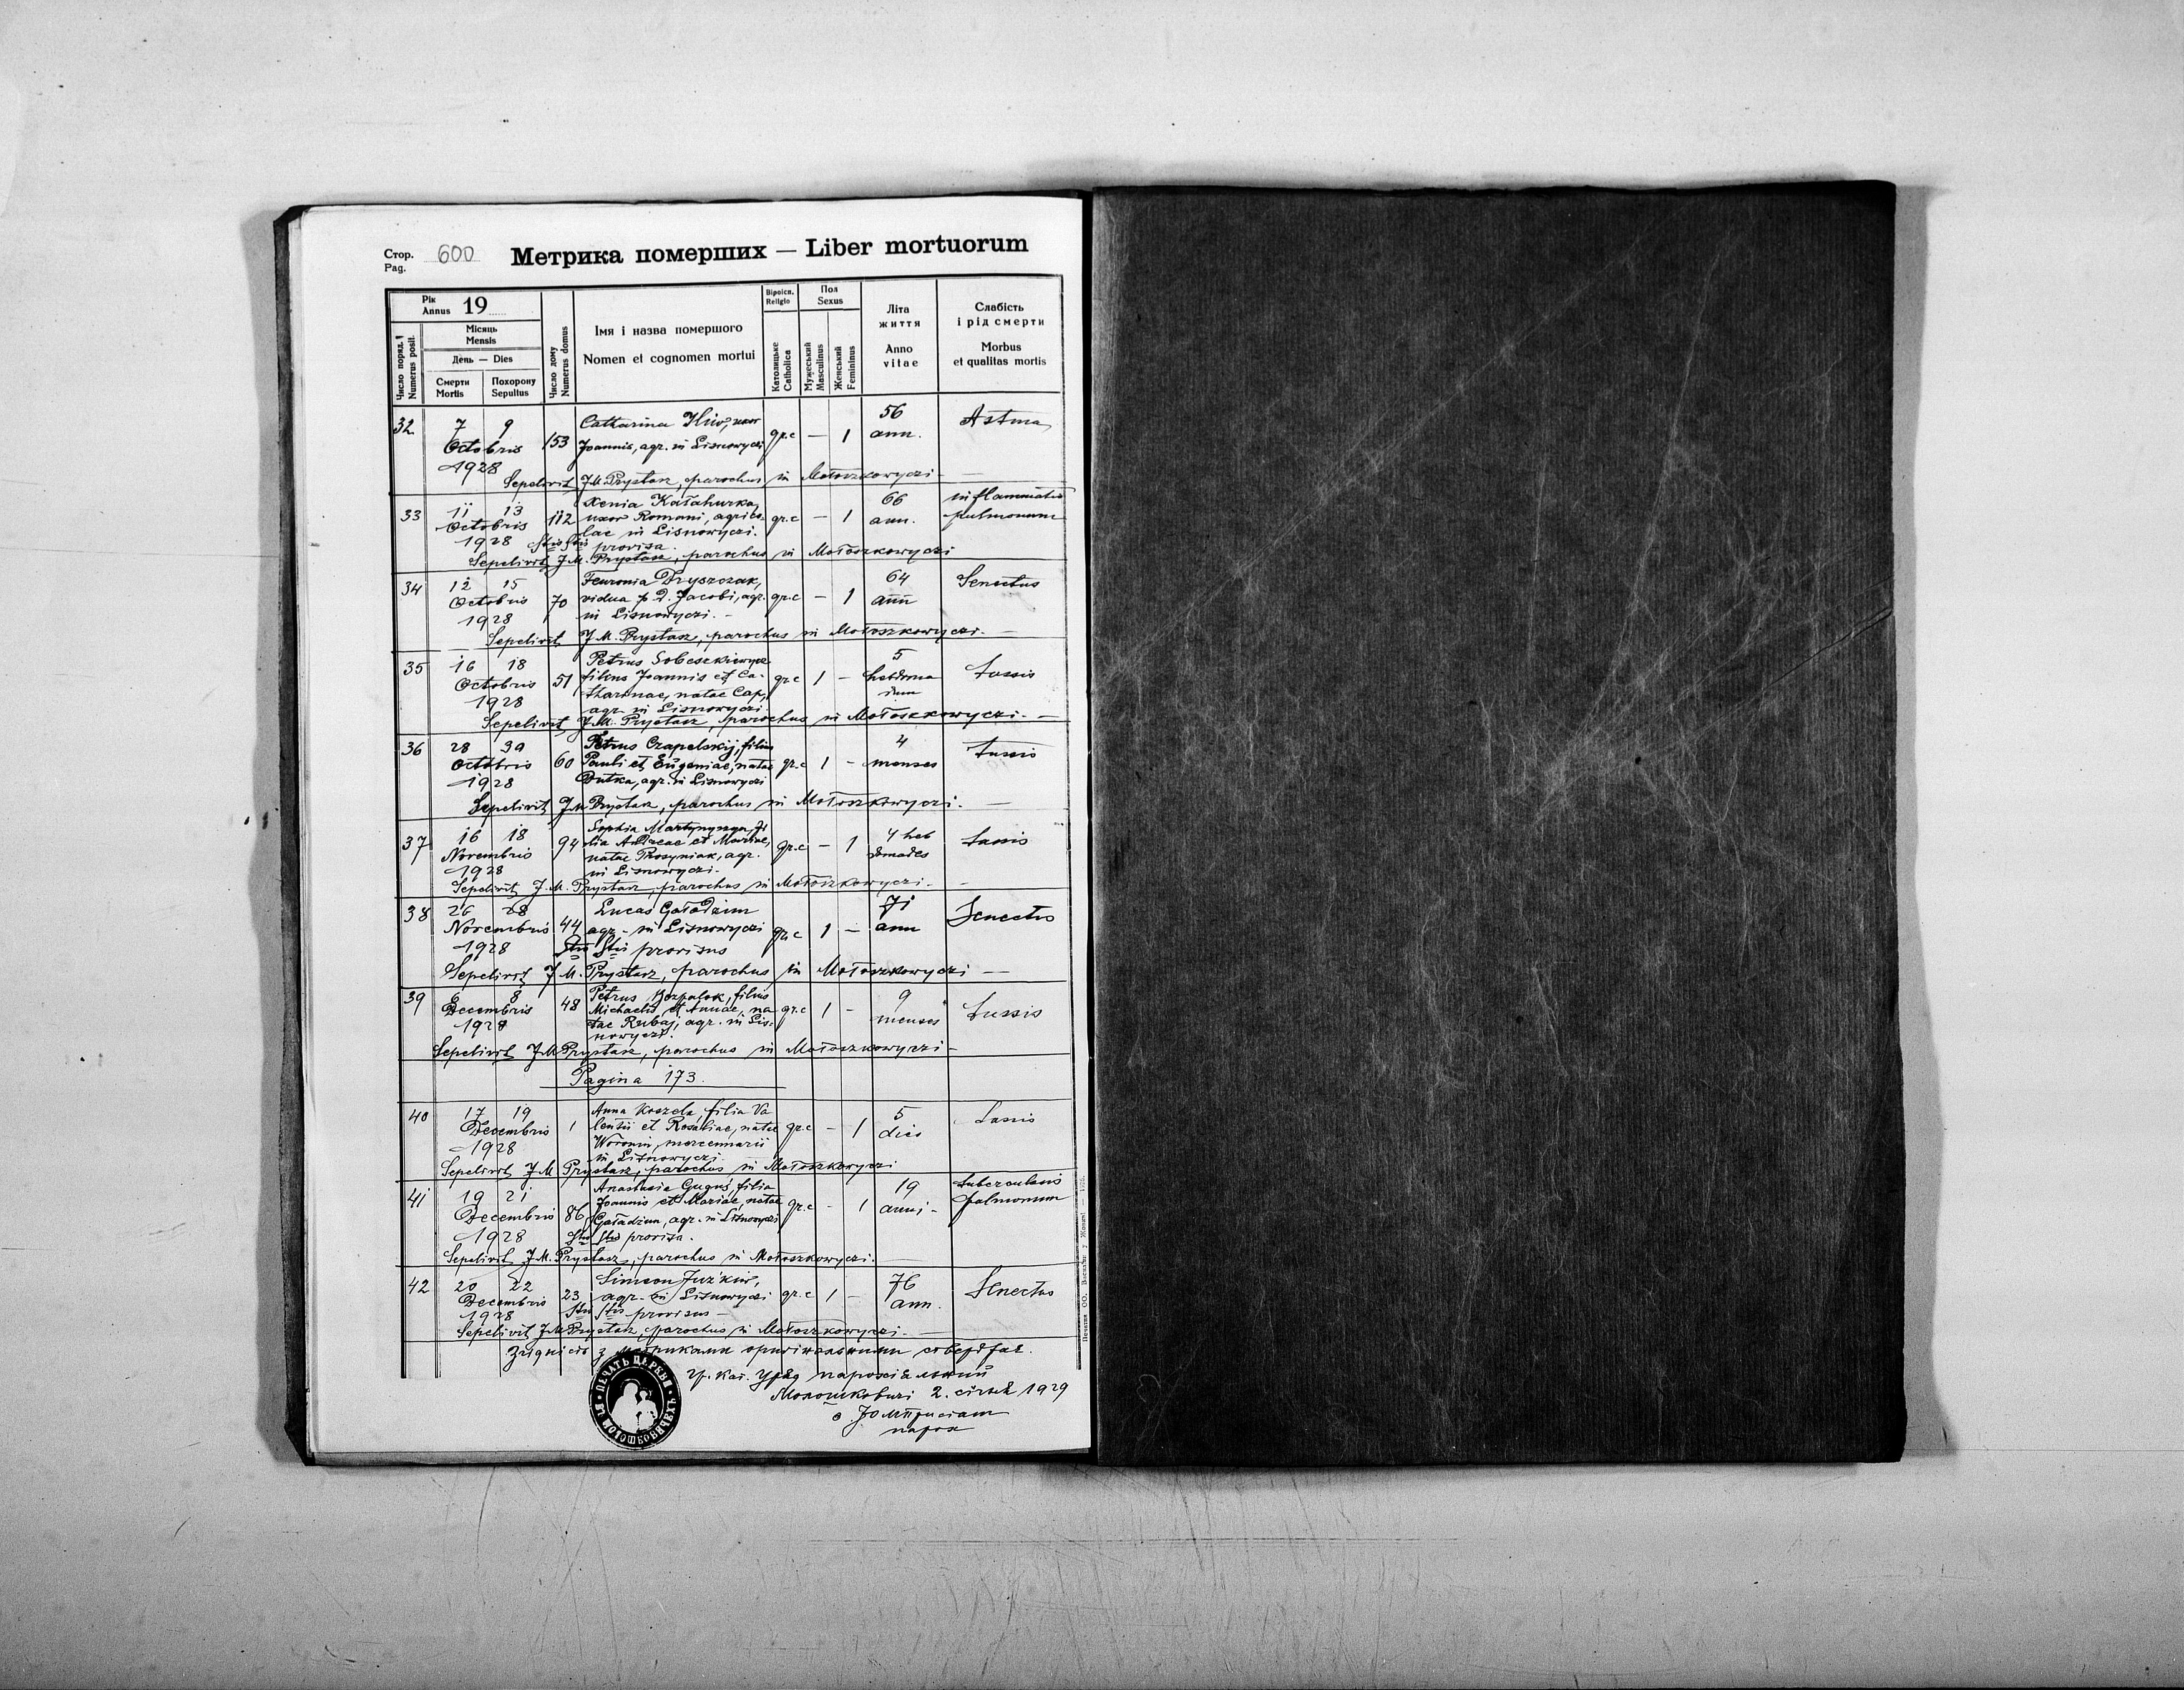 Стор. 600 Метрика померших — Liber mortuorum
Pag.
Рік
Annus 19
Місяць
Mensis
День — Dies
Число поряд.
Numerus posit.
Смерти
Mortis
Похорону
Sepultus
Число дому
Numerus domus
Імя і назва помершого
Nomen et cognomen mortui
Віроісп.
Religio
Католицьке
Catholica
Пол
Sexus
Мужеський
Masculinus
Женський
Femininus
Літа
життя
Anno
vitae
Слабість
і рід смерти
Morbus
et qualitas mortis
32 7 9 Catharina uxor 56 Astma
Octobris 153 Joannis, agr. in Lisnowyczi gr.c — 1 ann.
1928
Sepelivit J.M. Prystasz, parochus in Mołoszkowyczi
33 11 13 Xenia Kałahurka, 66 inflammatio
Octobris 112 uxor Romani, agrico- gr.c — 1 ann. pulmonum
1928 lae in Lisnowyczi.
provisa.
Sepelivit J.M. Prystasz, parochus in Mołoszkowyczi
34 12 15 Feuronia Dryszczak, 64 Senectus
Octobris 70 vidua p. D. Jacobi, agr. gr.c — 1 ann
1928 in Lisnowyczi. —
Sepelivit J.M. Prystasz, parochus in Mołoszkowyczi. —
35 16 18 Petrus Sobeszkiewycz 5 tussis
Octobris 51 filius Joannis et Ca- gr.c 1 — hebdoma
1928 tharinae, natae Cap, dum
agr. in Lisnowyczi
Sepelivit J.M. Prystasz, parochus in Mołoszkowyczi. —
36 28 30 Petrus Czapelskij, filius 4 tussis
Octobris 60 Pauli et Eugeniae, natae gr.c 1 — menses
1928 Dutka, agr. in Lisnowyczi
Sepelivit J.M. Prystasz, parochus in Mołoszkowyczi. —
37 16 18 Sophia Martynyszyn, fi 4 heb tussis
Novembris 94 lia Andreae et Mariae, gr.c — 1 domades
1928 natae Prosyniak, agr.
in Lisnowyczi.
Sepelivit J.M. Prystasz, parochus in Mołoszkowyczi. —
38 26 28 Lucas Gołodzun 71 Senectus
Novembris 44 agr. in Lisnowyczi gr.c 1 — ann
1928 provisus
Sepelivit J.M. Prystasz, parochus in Mołoszkowyczi —
39 6 8 Petrus filius 9 tussis
Decembris 48 Michaelis et Annae, na- gr.c 1 — menses
1928 tae Rubaj, agr. in Lis-
nowyczi.
Sepelivit J.M. Prystasz, parochus in Mołoszkowyczi —
Pagina 173.
40 17 19 Anna filia Va 5 tussis
Decembris 1 lentii et Rosaliae, natae gr.c — 1 dies
1928 Woronin, mercennarii
in Lisnowyczi.
Sepelivit J.M. Prystasz, parochus in Mołoszkowyczi
41 19 21 Anastasia Guguś, filia 19 tuberculosis
Decembris 86 Joannis et Mariae, natae gr.c — 1 anni — pulmonum
1928 agr. in Lisnowyczi
provisa.
Sepelivit J.M. Prystasz, parochus in Mołoszkowyczi.
42 20 22 Simeon Juźkiw, 76 Senectus
Decembris 23 agr. in Lisnowyczi gr.c 1 — ann.
1928 provisus —
Sepelivit J.M. Prystasz, parochus in Mołoszkowyczi. —
з метриками оригінальними
гр. кат. Уряд парохіяльний
Молошковичі 2. січня 1929
парох